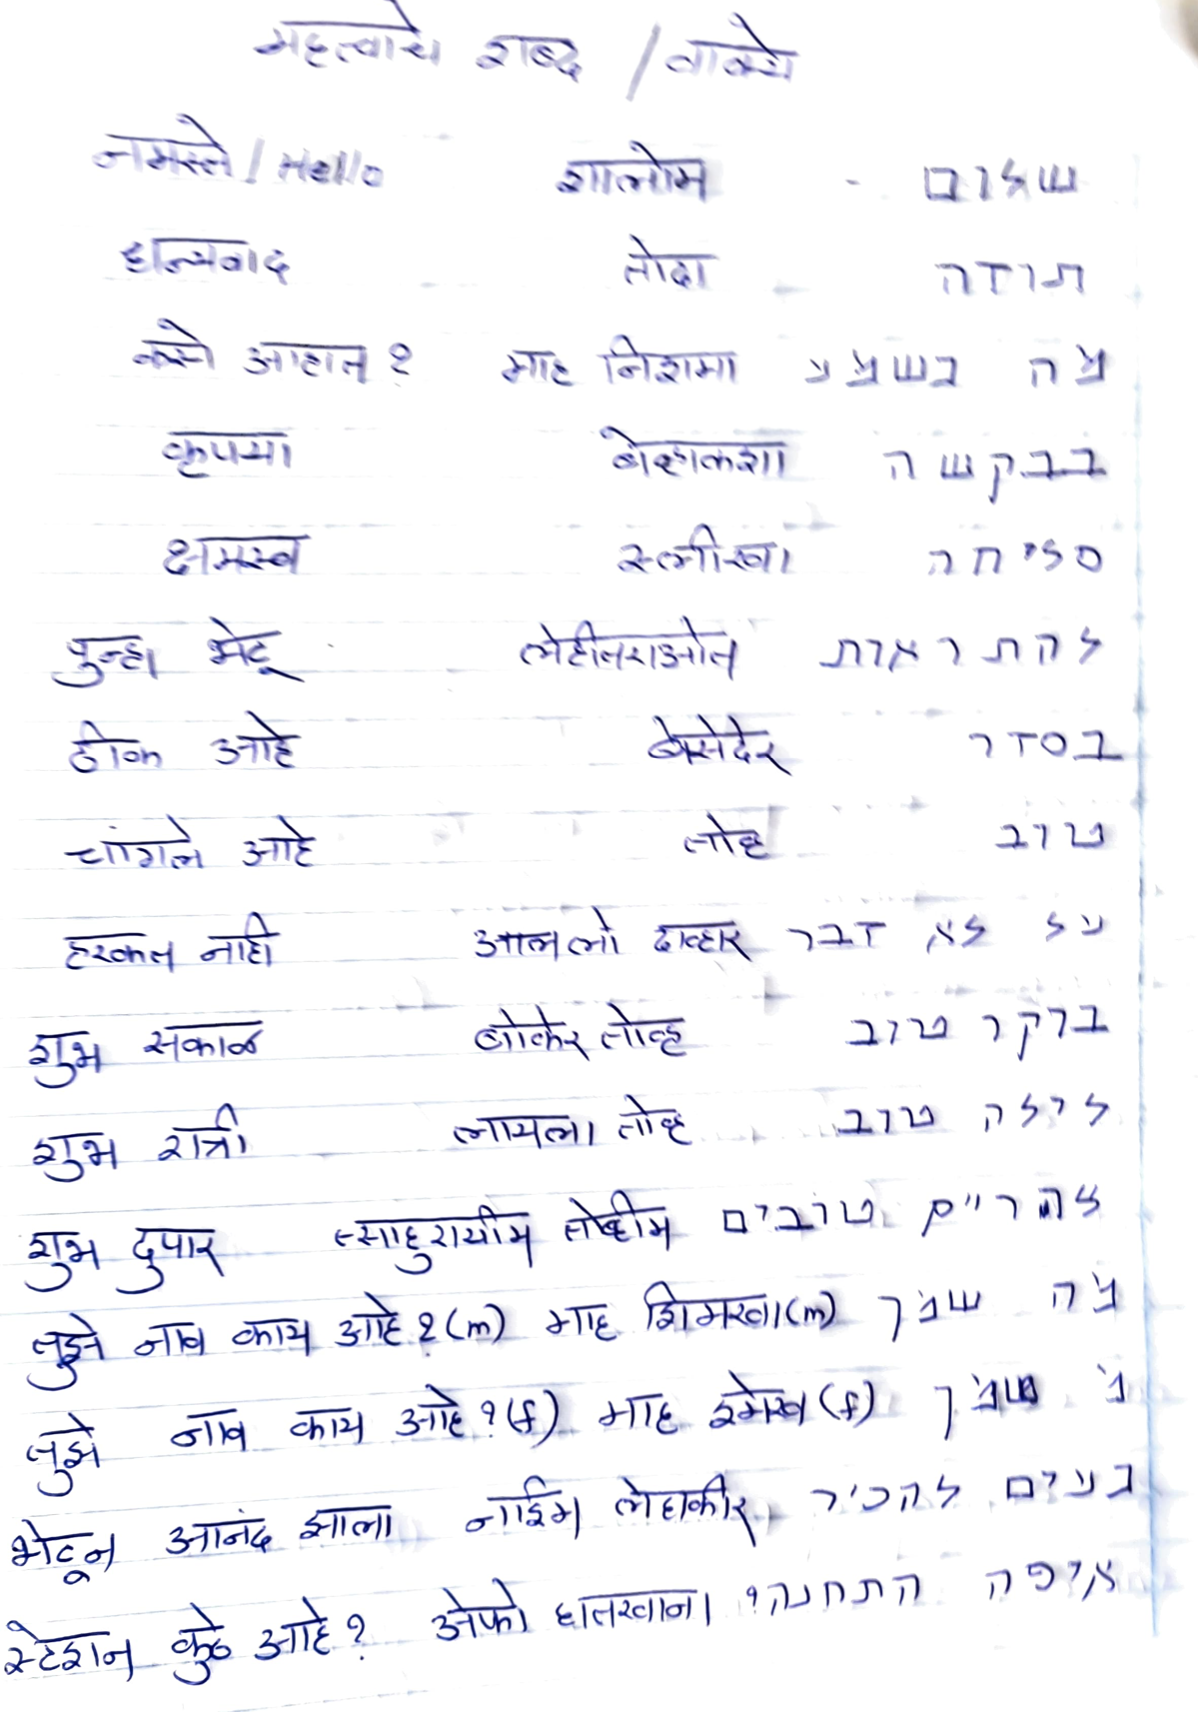 महत्वाचे शब्द / वाक्ये
नमस्ते / Hello शालोम - שלום
धन्यवाद तोदा תודה
कसे आहात ? माह निशमा מה בשמע
कृपया बेव्हाकशा בבקשה
क्षमस्व स्लीखा סליחה
पुन्हा भेटू लेहीतराओत להתראות
ठीक आहे बेसेदेर בסדר
चांगले आहे तोव्ह טוב
हरकत नाही आल लो दाव्हार על לא דבר
शुभ सकाळ बोकेर तोव्ह בוקר טוב
शुभ रात्री लायला तोव्ह לילה טוב
शुभ दुपार त्साहुरायीम तोव्हीम צהריים טובים
तुझे नाव काय आहे ? (m) माह शिमखा (m) מה שמך
तुझे नाव काय आहे ? (f) माह श्मेख (f) מ שמך
भेटून आनंद झाला नाईम लेहाकीर בעים להכיר
स्टेशन कुठे आहे ? ओफो हातखाना איפה התחנה?